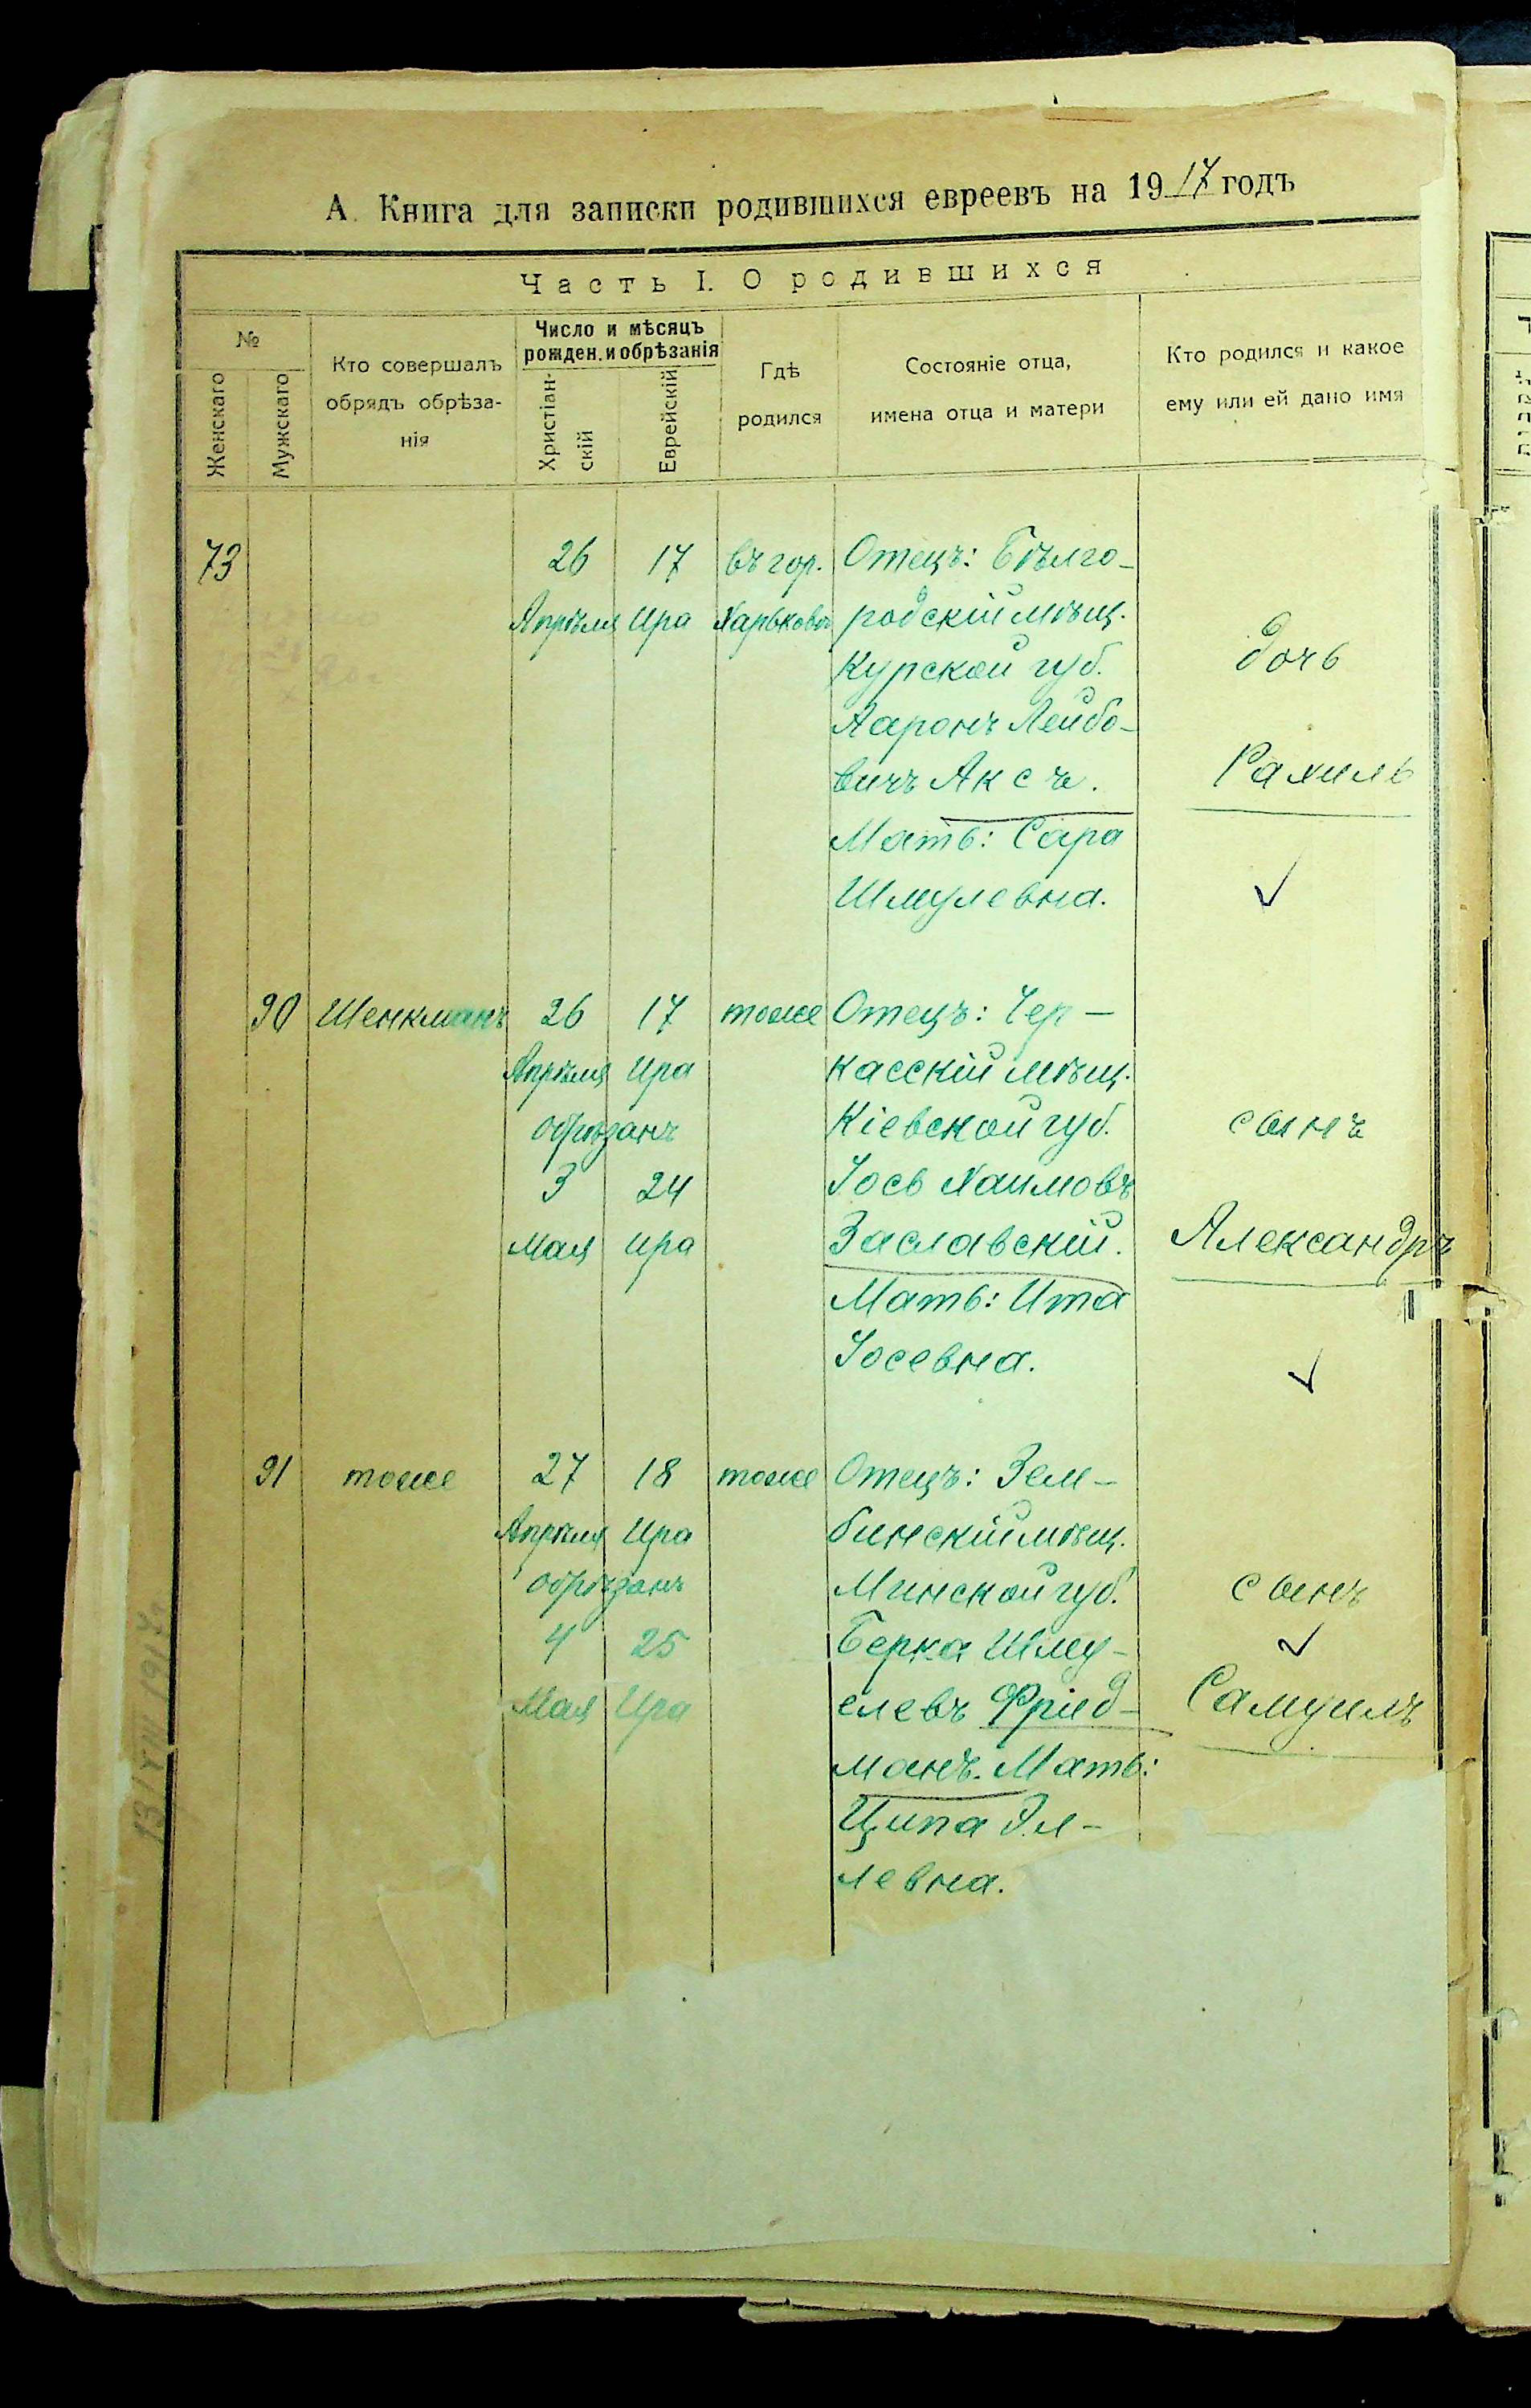 А. Книга для записки родившихся евреевъ на 1917 годъ
Часть I. О родившихся
№
Женскаго
Мужскаго
Кто совершалъ
обрядъ обрѣза-
нія
Число и мѣсяцъ
рожден. и обрѣзанія
Христіан-
скій
Еврейскій
Гдѣ
родился
Состояніе отца,
имена отца и матери
Кто родился и какое
ему или ей дано имя
73 26 17 въ гор. Отецъ: Бѣлго-
Апрѣля Ира Харьковѣ родскій мѣщ.
Курской губ. дочь
Ааронъ Лейбо-
вичъ Аксъ. Рахиль
Мать: Сара
Шмулевна. ✓
90 Шенкманъ 26 17 тоже Отецъ: Чер-
Апрѣля Ира касскій мѣщ.
обрѣзанъ Кіевской губ. сынъ
3 24 Іось Хаимовъ
Мая Ира Заславскій. Александръ
Мать: Ита
Іосевна. ✓
91 тоже 27 18 тоже Отецъ: Зем-
Апрѣля Ира бинскій мѣщ.
обрѣзанъ Минской губ. сынъ
4 25 Берка Шму- ✓
Мая Ира елевъ Фрид- Самуилъ
манъ. Мать:
Ципа Эл-
левна.